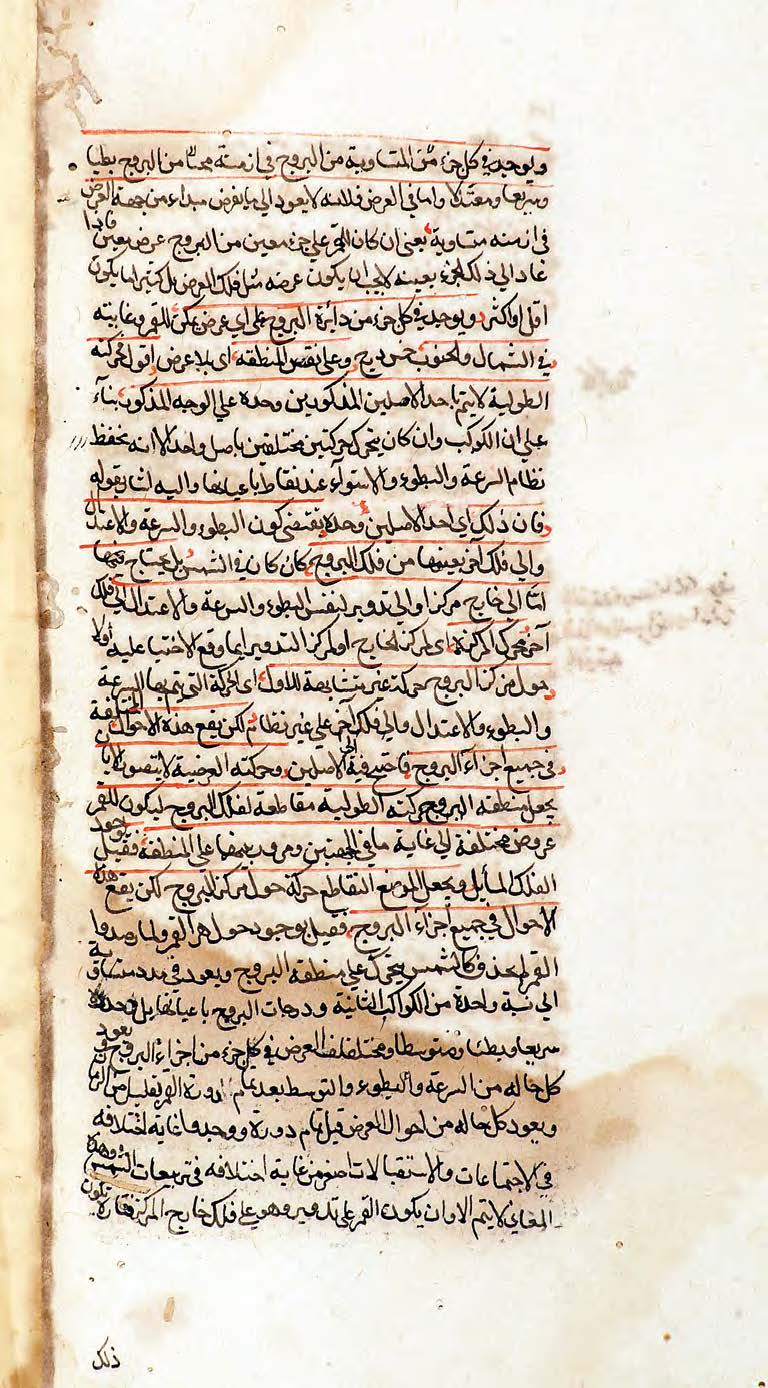 ويوجد في كل جزء من المتساوية من البروج في ازمنته من البروج بطيا
وسريعا ومعتدلا واما في العرض فلانه لا يعود الى ما يفرض مبداء من جهة العرض
في ازمنه متساوية يعنى ان كان القمر على جزء معين من البروج عرض معين فاذا
عاد الى ذلك الجزء بعينه لا يجب ان يكون عرضه مثل ذلك العرض بل كثيرا ما يكون
اقل او اكثر ويوجد في كل جزء من دائرة البروج على اي عرض يمكن للقمر وغايته
في الشمال والجنوب وعلى نفس المنطقه اى بلا عرض اقول حركته
الطولية لا يتم باحد الاصلين المذكورين وحده على الوجه المذكور بناء
على ان الكوكب وان كان يتحرك حركتين مختلفتين باصل واحد الا انه يحفظ
نظام السرعة والبطوء والاستواء عند نقاط باعيانها واليه اشار بقوله
فان ذلك اي احد الاصلين وحده يقتضى كون البطوء والسرعة والاعتدال
والى فلك اخر بعينها من فلك البروج كان كان في الشمس بل يحتاج فيها
امّا الى خارج مركز او الى تدوير لنفس البطوء والسرعة والاعتدال الى فلك
آخر محرك المركزه اى لمركز الخارج او لمركز التدوير ايما وقع الاختيار عليه اولا
حول مركز البروج حركة غير متشابهة للاول اى الحركة التى يتم بها السرعة
والبطوء والاعتدال والى فلك آخر على غير نظام لكن يقع هذه الاحوال المختلفة
في جميع اجزاء البروج فاحتيج فيه الى الاصلين وحركته العرضية لا يتصور الا بان
يجعل منطقه البروج حركته الطولية مقاطعة لفلك البروج ليكون للقمر
عروض مختلفة الى غاية ما في الجهتين ومرور بعضها على المنطقة فقيل بوجود
الفلك المائل ويجعل الموضع التقاطع حركة حول مركز البروج لكن يقع هذه
الاحوال في جميع اجزاء البروج فقيل بوجود القمر ولما رصدوا
القمر كالشمس يتحرك على منطقه البروج ويعود في مدد متساوية
الى نسبة واحدة من الكواكب الثانية ودرجات البروج باعيانها بل وجدوه
سريعا وبطئا ومتوسطا ومختلف العرض في كل جزء من اجزاء البروج ويعود
كل حاله من السرعة والبطوء والتوسط بعد تمام دورة القمر بقليل من الزمان
ويعود كل حاله من احوال العرض قبل تمام دورة ووجدوا غاية اختلافه
في الاجتماعات والاستقبالات اصغر من غاية اختلافه في تربيعات الشمس وهذه
المعاني لا يتم الا وان يكون القمر على تدوير وهو على فلك خارج المركز فتارة يكون
ذلك